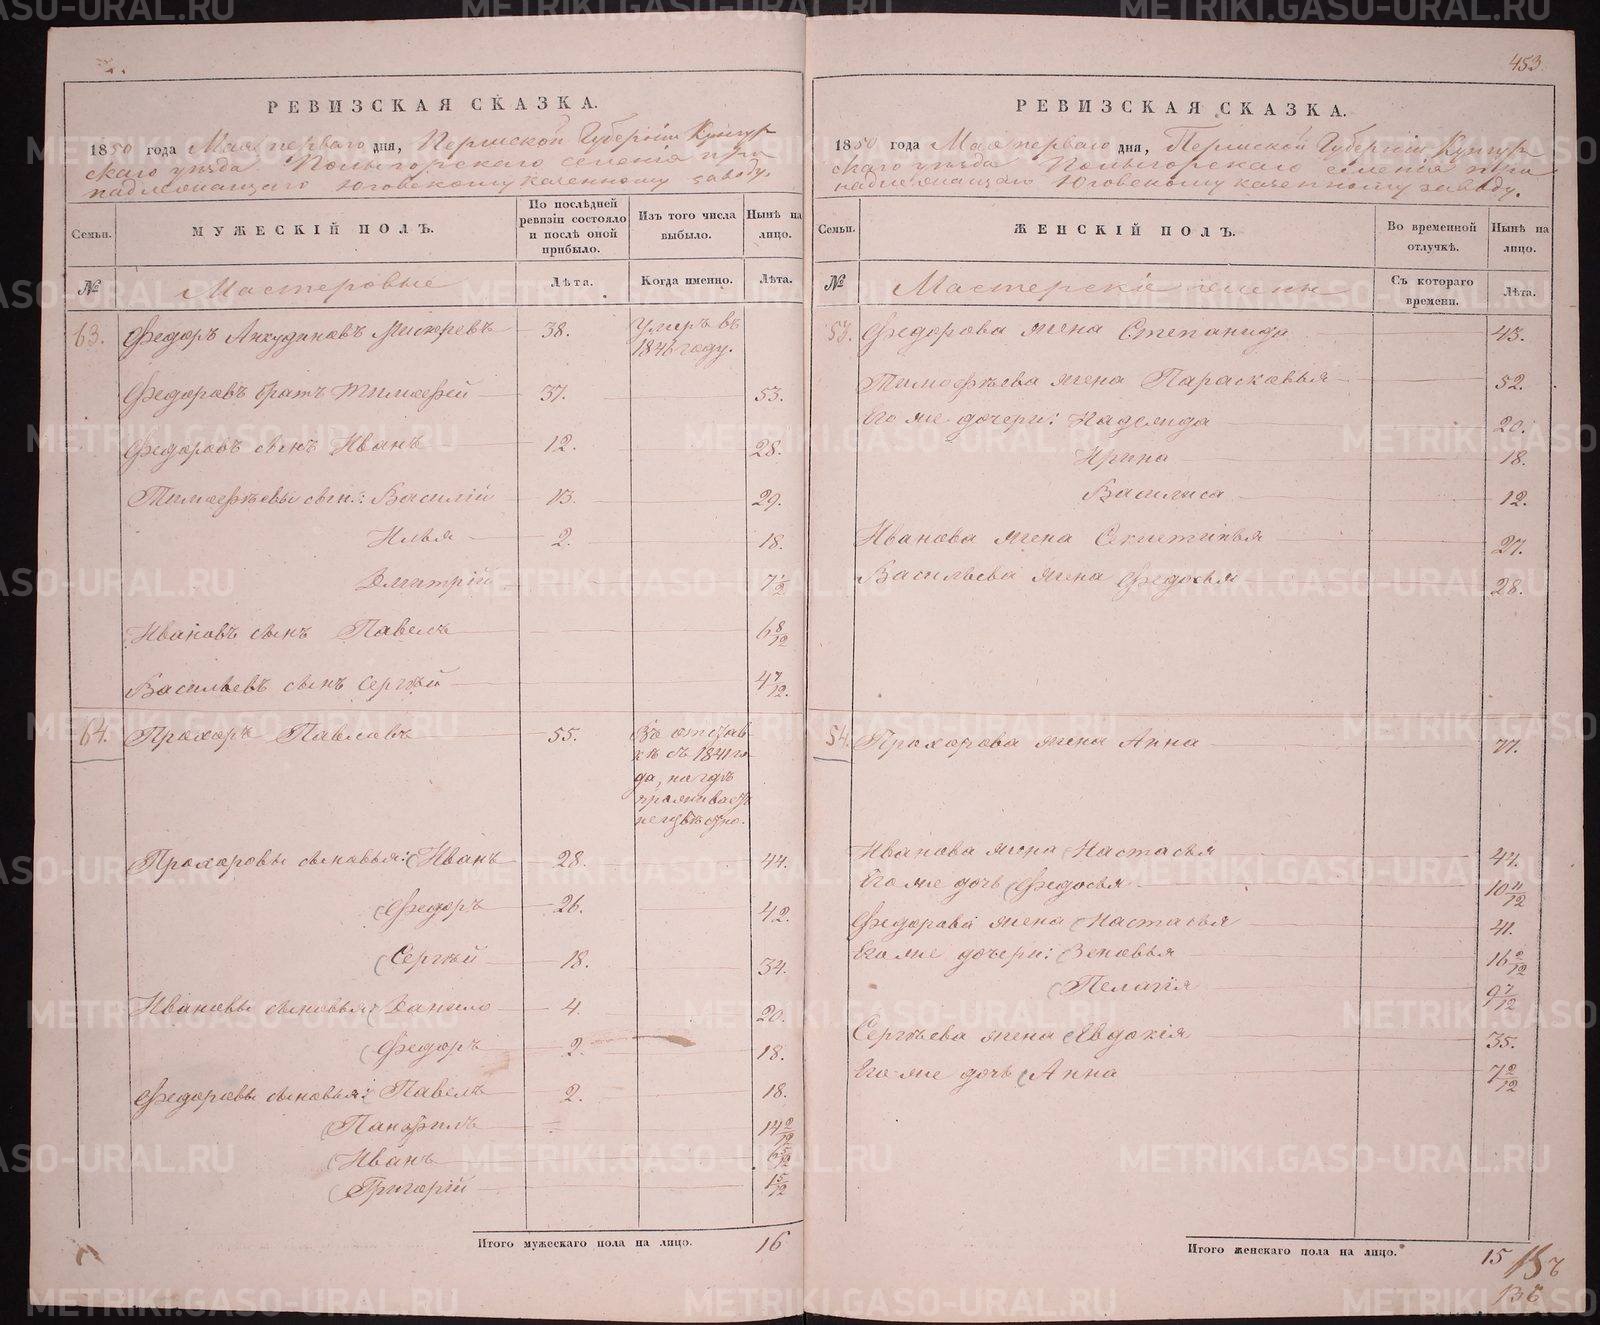 453
РЕВИЗСКАЯ СКАЗКА.
1850 года Мая перваго дня, Пермской Губернiи Кунгур-
скаго уѣзда селенiя при-
надлежащаго Юговскому казенному заводу.
Семьи.
МУЖЕСКIЙ ПОЛЪ.
По послѣдней ревизiи состояло и послѣ оной прибыло.
Изъ того числа выбыло.
Нынѣ на лицо.
№
Мастеровые
Лѣта.
Когда именно.
Лѣта.
63. Федоръ Анкудиновъ 38. Умеръ въ
1846 году.
Федоровъ братъ Тимофей 37. 53.
Федоровъ сынъ Иванъ 12. 28.
Тимофѣевы сын.: Василiй 13. 29.
Илья 2. 18.
Дмитрiй 7 1/2
Ивановъ сынъ Павелъ 6 8/12
Васильевъ сынъ Сергѣй 4 7/12.
64. Прохоръ Павловъ 55. Въ отстав-
кѣ съ 1841 го-
да, но гдѣ
проживаетъ
неизвѣстно.
Прохоровы сыновья: Иванъ 28. 44.
Федоръ 26. 42.
Сергѣй 18. 34.
Ивановы сыновья: Данило 4. 20.
Федоръ 2. 18.
Федоровы сыновья: Павелъ 2. 18.
Панфилъ 14 2/12
Иванъ 6 5/12
Григорiй 1 5/12
Итого мужескаго пола на лицо. 16
РЕВИЗСКАЯ СКАЗКА.
1850 года Мая перваго дня, Пермской Губернiи Кунгур-
скаго уѣзда селенiя при-
надлежащаго Юговскому казенному заводу.
Семьи.
ЖЕНСКIЙ ПОЛЪ.
Во временной отлучкѣ.
Нынѣ на лицо.
№
Мастерскiе жены
Съ котораго времени.
Лѣта.
53. Федорова жена Степанида 43.
Тимофѣева жена Парасковья 52.
Его же дочери: Надежда 20.
Ирина 18.
Василиса 12.
Иванова жена Секлетинья 27.
Васильева жена Федосья 28.
54. Прохорова жена Анна 77.
Иванова жена Настасья 44.
Его же дочь Федосья 10 11/12
Федорова жена Настасья 41.
Его же дочери: Зеновья 16 2/12
Пелагiя 9 7/12
Сергѣева жена Евдокiя 35.
Его же дочь Анна 7 2/12
Итого женскаго пола на лицо. 15
METRIKI.GASO-URAL.RU